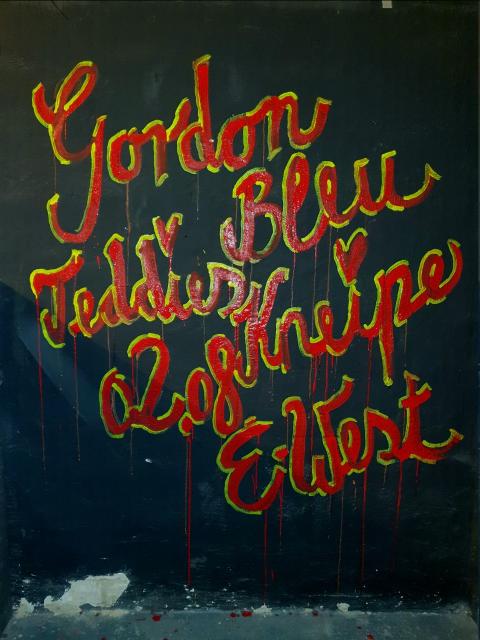 Gordon
Bleu
Teddies Kneipe
02.08
E-West